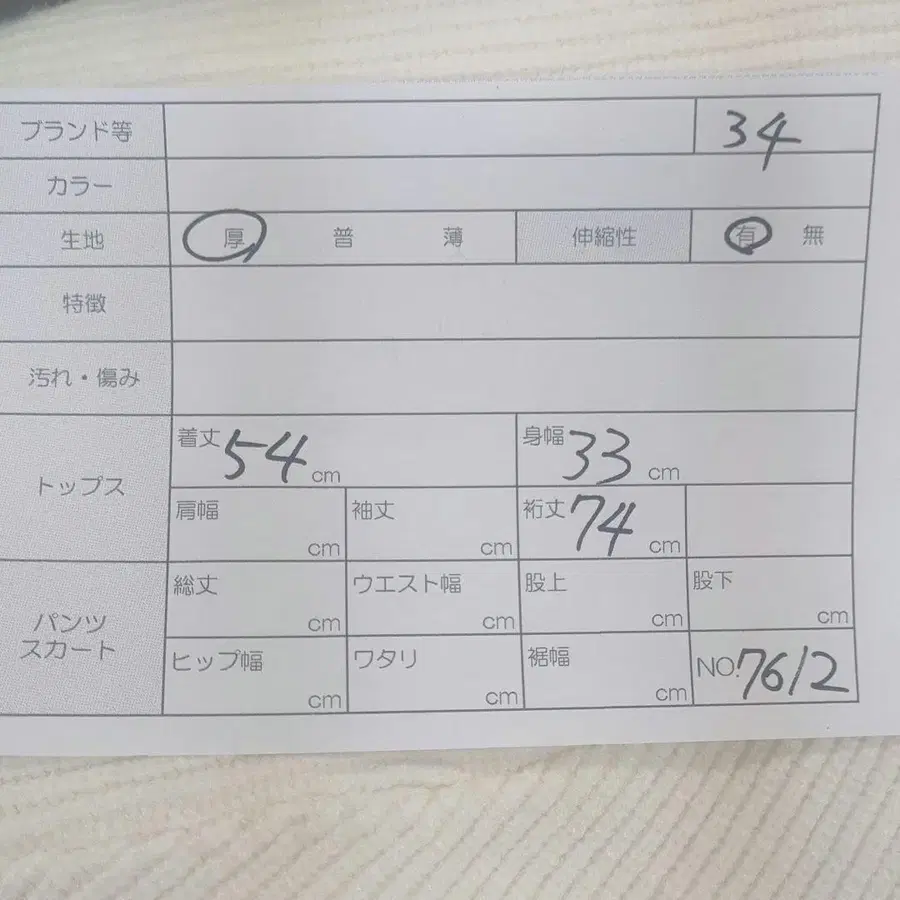 ブランド等 34
カラー
生地 厚 普 薄 伸縮性 有 無
特徴
汚れ・傷み
トップス
着丈 54 cm 身幅 33 cm
肩幅 cm 袖丈 cm 裄丈 74 cm
パンツ
スカート
総丈 cm ウエスト幅 cm 股上 cm 股下 cm
ヒップ幅 cm ワタリ cm 裾幅 cm NO.7612